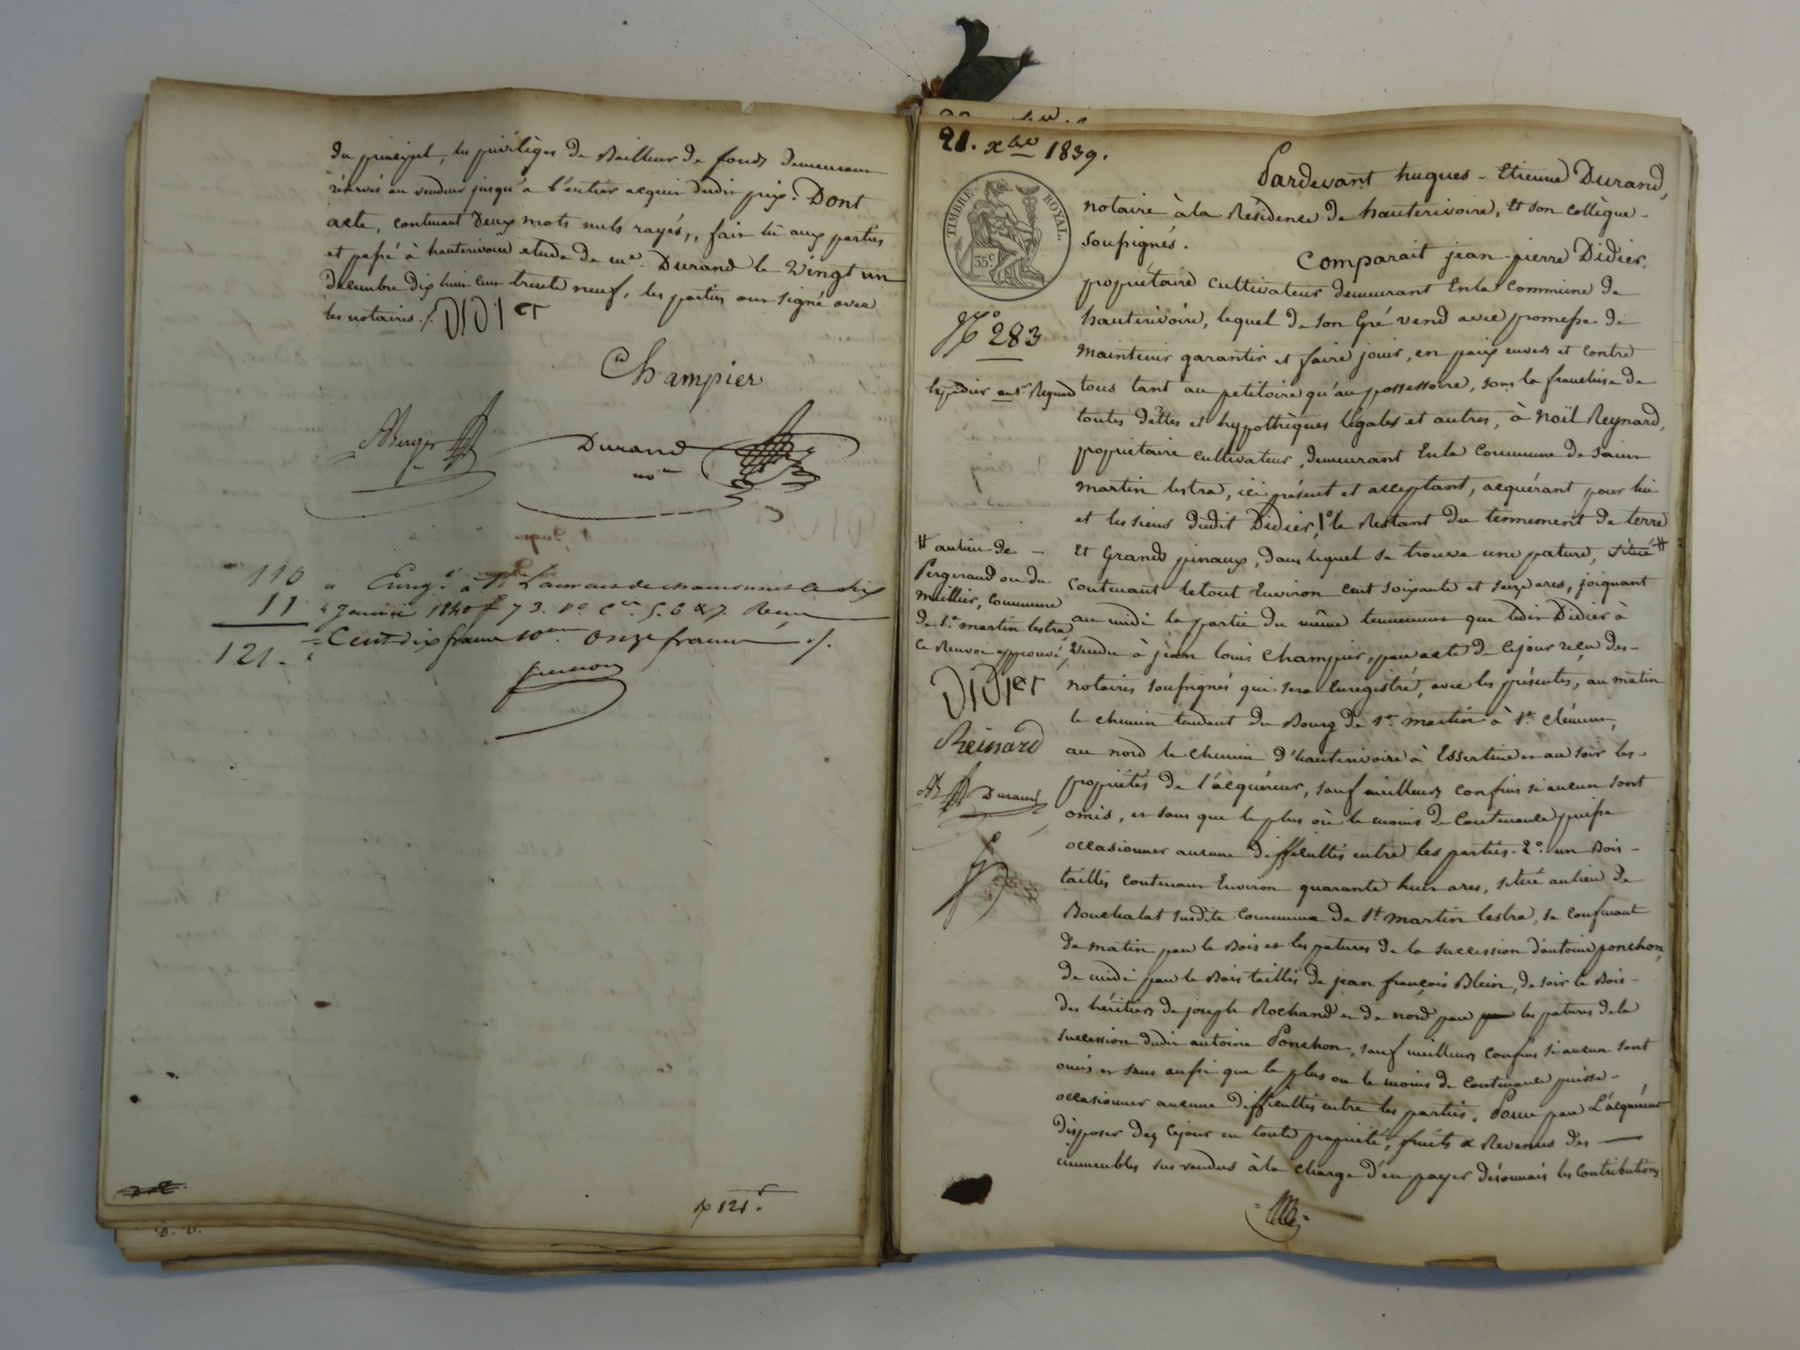 du principal, les privilèges de Bailleur de fonds demeurant
réservés au vendeur jusqu'a l'entier acquit dudit prix. Dont
acte, contenant Deux mots nuls rayés, fait lu aux parties
et passé à hauterivoire etude de me. Durand le vingt un
Decembre dix huit cent trente neuf, les parties ont signé avec
les notaires ./. DIDIET
Champier
Durand
nore
110 " Enreg.é à St Laurent de chamousset le dix
11 " Janvier 1840 fo 73. Vo. Ces. 5. 6 & 7. Reçu
121. " Cent dix francs 10me onze francs ./.
121.
21. xbre 1839.
Pardevant hugues-Etienne Durand,
notaire à la Résidence de hauterivoire, et son collègue
soussignés.
TIMBRE ROYAL.
35 C
Comparait jean-pierre Didier,
propriétaire cultivateur demeurant En la commune de
hauterivoire, lequel de son Gré vend avec promesse de
No 283
maintenir garantir et faire jouir, en paix envers et contre
Expédier au sr Reynard
tous tant au petitoire qu'au possessoire, sous la franchise de
toutes dettes et hypothèques légales et autres, à Noël Reynard,
propriétaire cultivateur, demeurant En la commune de Saint
martin lestra, ici présent et acceptant, acquérant pour lui
et les siens dudit Didier, 1o le Restant du tennement de terre
et Grands pinaux, dans lequel se trouve une pature, situé #
contenant le tout Environ cent soixante et seize ares, joignant
au midi la partie du même tennement que ledit Didier à
vendu à jean louis Champier, par acte de cejour reçu des
notaires soussignés qui sera Enregistré, avec les présentes, au matin
le chemin tendant du Bourg de St. martin à St. clément,
au nord le chemin d'hauterivoire à Essertine et au soir les
propriétés de l'acquéreur, sauf meilleurs confins si aucun sont
omis, et sans que le plus où le moins de contenance puisse
occasionner aucune difficultés entre les parties. 2o. un Bois
taillis contenant Environ quarante huit ares, situé au lieu de
Bouchalat susdite commune de St. martin lestra, se confinant
de matin par le Bois et les patures de la succession d'antoine ponchon,
de midi par le Bois taillis de jean françois Blein, de soir le Bois
des héritiers de joseph Rochand et de nord par les patures de la
succession dudit antoine Ponchon, sauf meilleurs confins si aucun sont
omis et sans aussi que le plus ou le moins de contenance puisse
occasionner aucune difficultés entre les parties. Pour par L'acquéreur
disposer dez cejour en toute propriété, fruits & Revenus des
immeubles sus vendus à la charge d'en payer désormais les contributions
# au lieu de
Pergirand ou du
Mullier, commune
de St. martin lestra
ce Renvoi approuvé,
DIDIET
Reinard
Durand